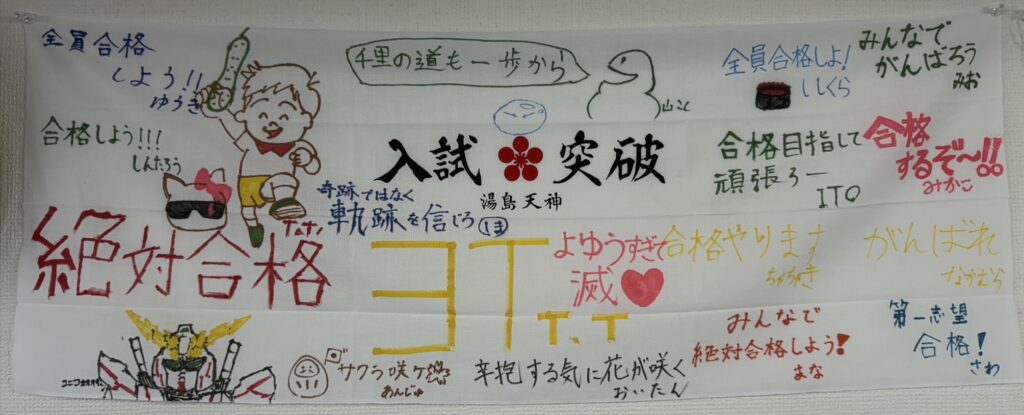 全員合格
しよう!!
ゆうき
合格しよう!!!
しんたろう
千里の道も一歩から
入試突破
湯島天神
全員合格しよ!
ししくら
みんなで
がんばろう
みお
合格目指して
頑張ろー
ITO
合格
するぞ〜!!
みかこ
奇跡ではなく
軌跡を信じろ
絶対合格
よゆうすぎて
滅♥
合格やります
がんばれ
なかむら
T.T
サクラ咲ケ
あんじゅ
辛抱する気に花が咲く
おいたん
みんなで
絶対合格しよう!
まな
第一志望
合格!
さわ